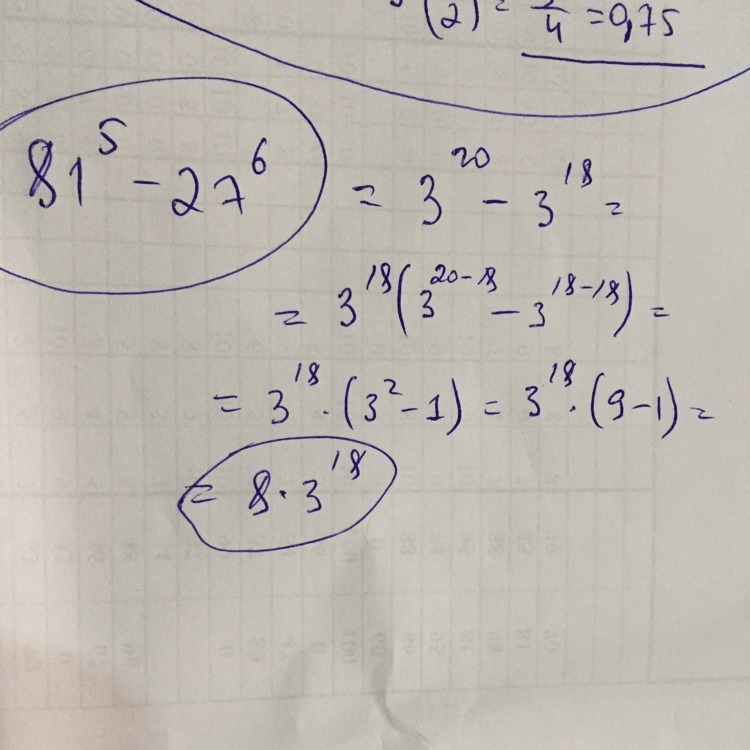 (2) = 3/4 = 0,75
81^5 - 27^6 = 3^20 - 3^18 =
= 3^18 (3^20-18 - 3^18-18) =
= 3^18 · (3^2 - 1) = 3^18 · (9-1) =
= 8 · 3^18